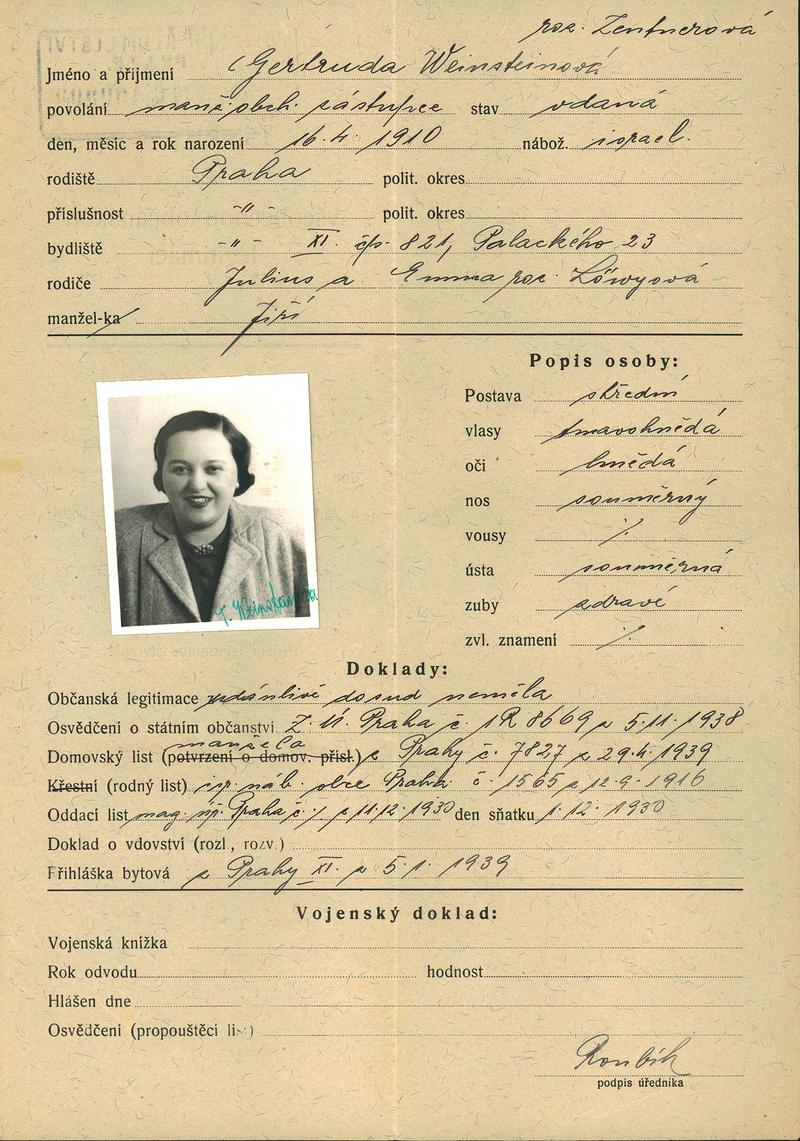 roz. Zentnerová
Jméno a příjmení Gertruda Weinsteinová
povolání manž. obch. zástupce stav vdaná
den, měsíc a rok narození 16. 4. 1910 nábož. israel.
rodiště Praha polit. okres
příslušnost -"- polit. okres
bydliště -"- XI. čp. 821, Palackého 23
rodiče Julius a Emma roz. Löwyová
manžel-ka Jiří
Popis osoby:
Postava střední
vlasy tmavohnědá
oči hnědá
nos souměrný
vousy ./.
ústa souměrná
zuby zdravé
zvl. znamení ./.
Weinsteinová
Doklady:
Občanská legitimace údánlivě dosud neměla
Osvědčení o státním občanství Z. Ú. Praha č. 1R 8669 z 5. 11. 1938
manžela
Domovský list (potvrzení o domov. přísl.) z Prahy č. 7827 z 29. 4. 1939
Křestní (rodný list) isr. náb. obce Praha č. 1565 z 12. 9. 1916
Oddací list mag. Praha č. /. z 11. 12. 1930 den sňatku 1. 12. 1930
Doklad o vdovství (rozl., rozv.)
Přihláška bytová z Prahy XI. z 5. 1. 1939
Vojenský doklad:
Vojenská knížka
Rok odvodu hodnost
Hlášen dne
Osvědčení (propouštěcí lis)
Roubík
podpis úředníka